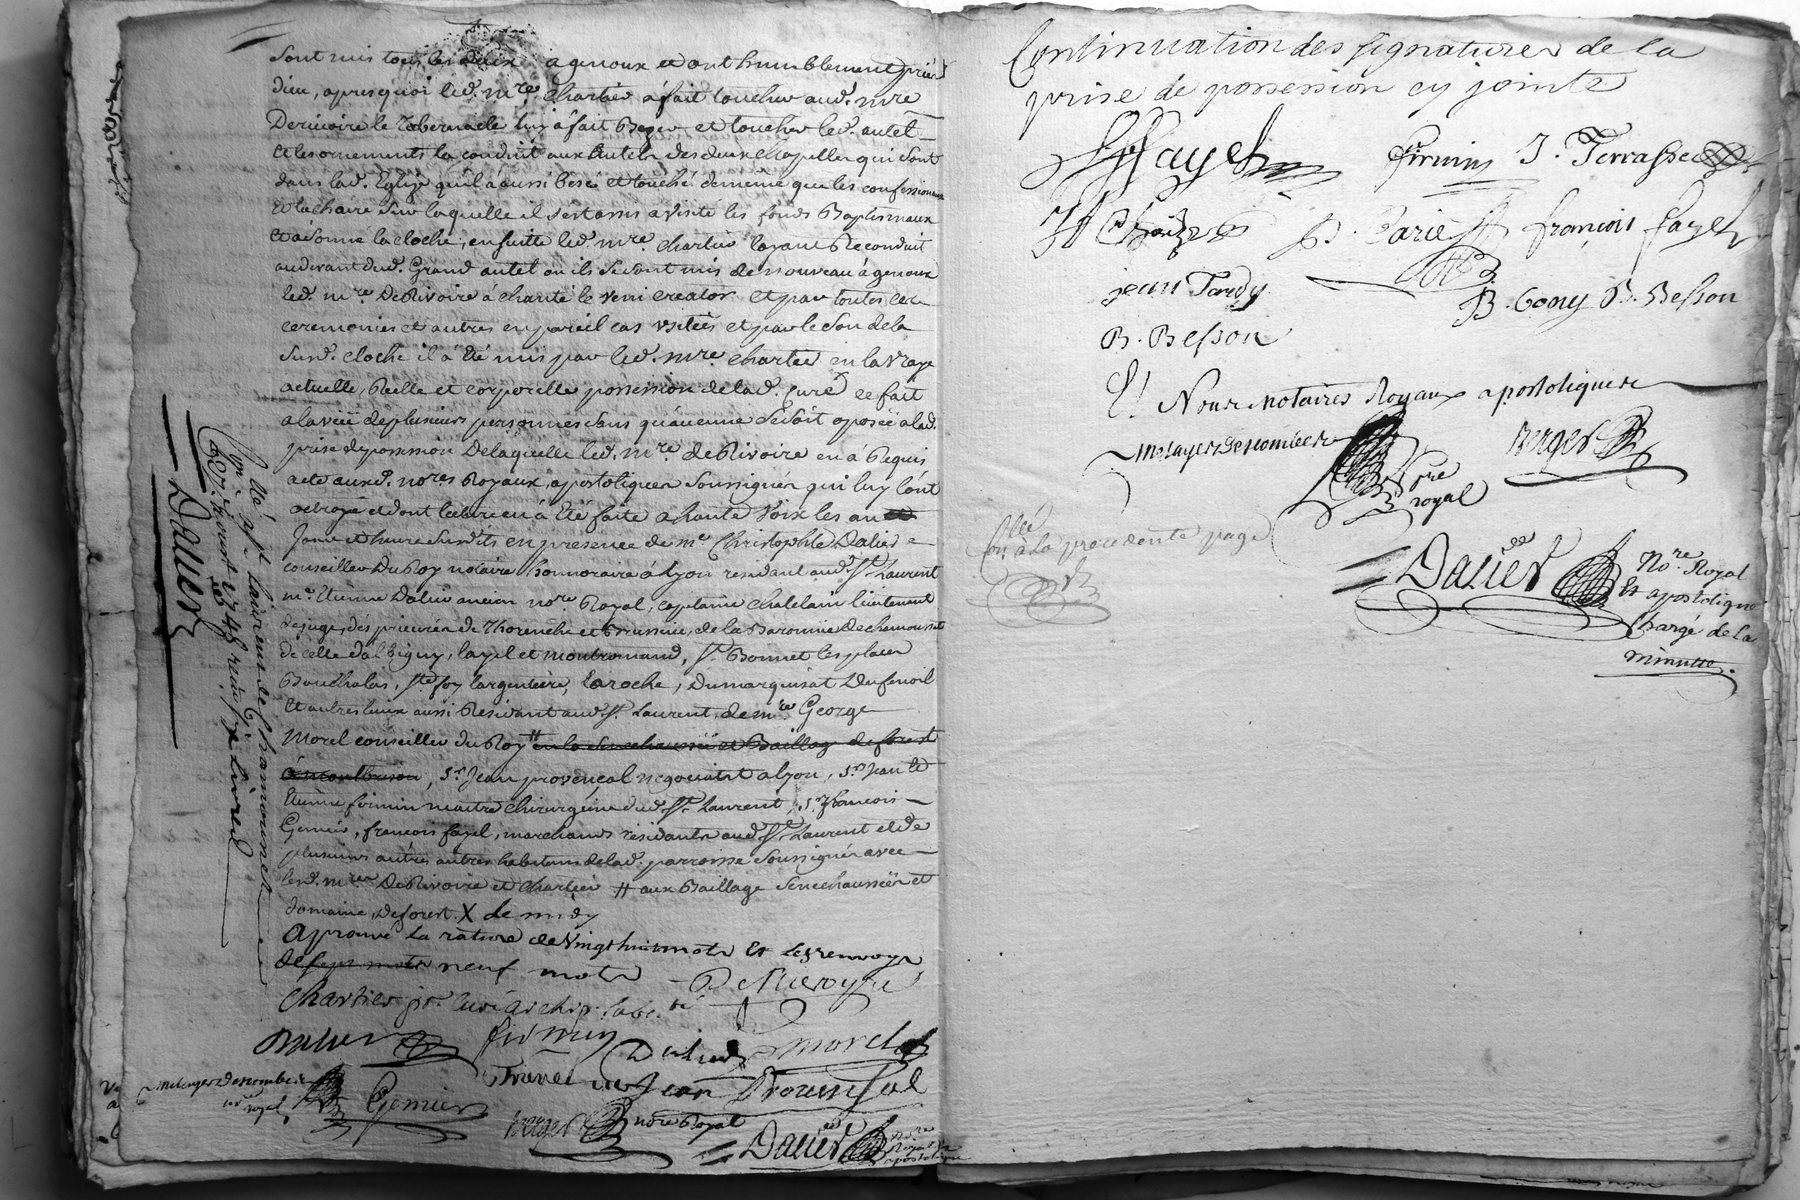 sont mis tous les deux a genoux et ont humblement prié
dieu, apres quoi led. mre. Chartier a fait toucher aud. mre
Derivoire le Tabernacle luy a fait Bezer et toucher led. autel
et les ornements la conduit aux autels des deux chapelles qui sont
dans lad. Eglize qu'il a aussi besés et touché de meme que les confessionaux
et la chaire sur laquelle il s'est assis a visité les fonds Baptismaux
et a sonné la cloche, ensuitte led. mre Chartier layant Reconduit
au devant dud. Grand autel ou ils se sont mis de nouveau à genoux
led. mre. DeRivoire à chanté le veni creator et par toutes les
ceremonies et autres en pareil cas usitées et par le son de la
susd. cloche il à été mis par led. mre. chartier en la vraye
actuelle, Reelle et corporelle possession de lad. Cure ce fait
a la vüe de plusieurs personnes sans qu'aucune se soit oposée a lad.
prise de possession De laquelle led. mr. de Rivoire en à Requis
acte auxd. nores Royaux, apostoliques soussignés qui luy l'ont
octroyé et dont lecture en à Eté faitte a haute Voix les an
Jour et heure susdits en presence de me Christophle Dalier
conseiller Du Roy notaire honnoraire à Lyon residant aud. St. Laurent
me. Etienne Dalier ancien nore. Royal, capitaine chatelain lieutenant
de juge, des prieurés de Thorenche et Brussieu, de la Baronnie De chamousset
de celle d'albigny, layel et montromand, St. Bonnet les places
Bouthalas, ste foy largentiere, Laroche, Dumarquisat Dufenoil
et autres lieux aussi Residant aud. St. Laurent, de mre George
Morel conseiller du Roy # en la Senechaussée et Baillage de forest
à montbrison, Sr. Jean provençal negociant a lyon, Sr. Jean
Etienne firmin maitre chirurgien dud. St. Laurent, Sr. francois
Gemier, francois fayel, marchands residants aud. St. Laurent et de
plusieurs autres autres habitans de lad. parroisse soussignés avec
lesd. mres DeRivoire et Chartier # aux Baillage Senechaussées et
domaine, De forest. X de midy
Aprouvé La rature de vingt huit mots Et Les renvoys
de sept mots neuf mots
Chartier
Dalier firmin Dalier morel
Jean Prouensal
Melayer Descombes
nre royal
Gemier
Berger nore Royal
Dalier nore
Royal et
apostolique
insinué 6. 1748 reçu six Livres
Dalier
Continuation des signatures de la
prise de possession cy jointe
Fayel firmin J. Terrasse
P. Parie françois fayel
jean Tardy
B. Gony B. Besson
B. Besson
Et Nous notaires Royaux apostoliques
Melayer Descombes
nre
royal
Berger
à la precedente page
Dalier nore. Royal
Et apostolique
Chargé de la
minutte.